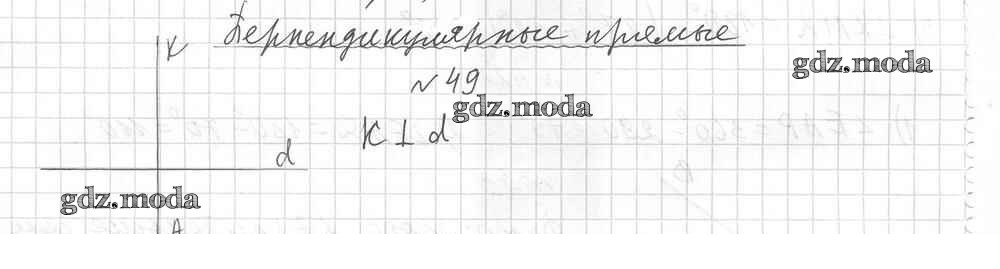 Перпендикулярные прямые
K
№ 49
gdz.moda
gdz.moda
K ⊥ d
d
gdz.moda
A